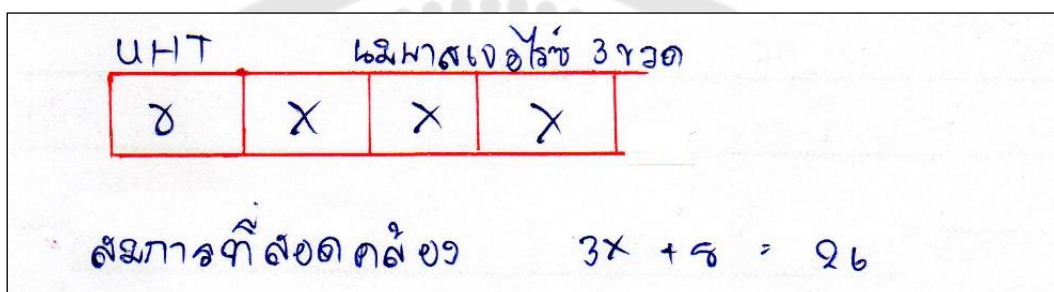 UHT นมพาสเจอไรซ์ 3 ขวด
8 X X X
สมการที่สอดคล้อง 3X + 8 = 26